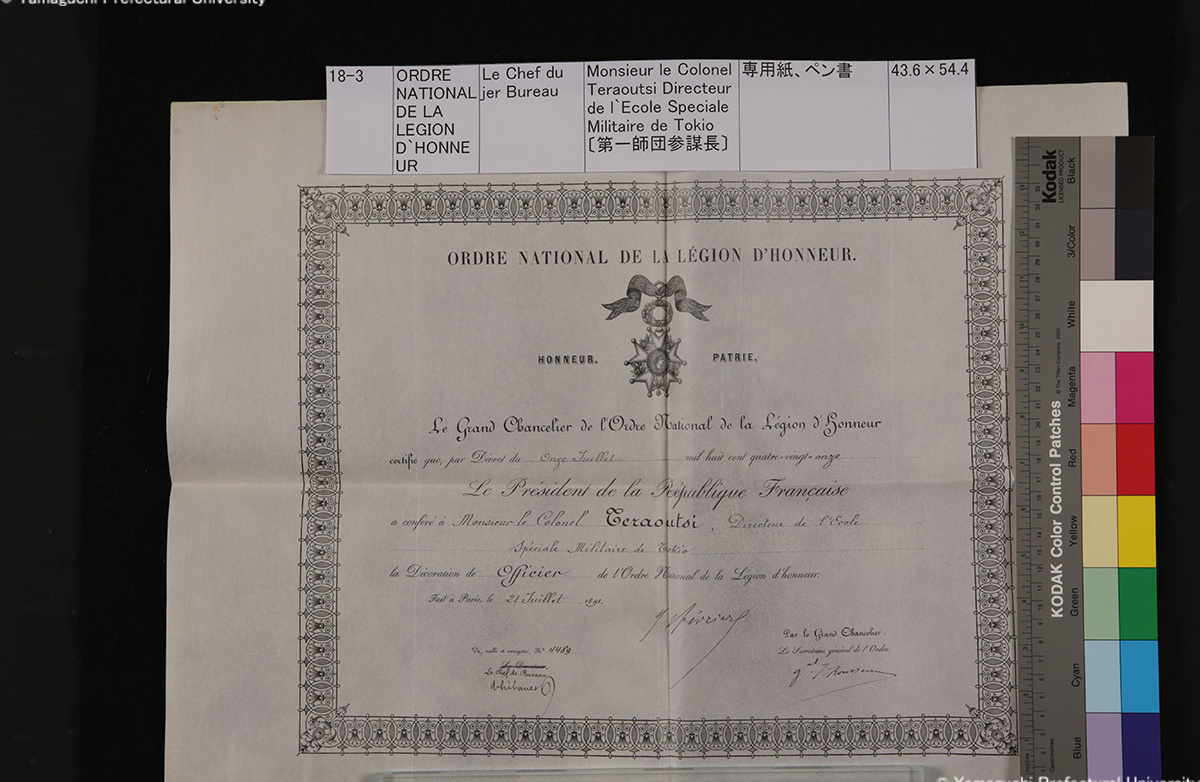 © Yamaguchi Prefectural University
18-3
ORDRE
NATIONAL
DE LA
LEGION
D`HONNE
UR
Le Chef du
jer Bureau
Monsieur le Colonel
Teraoutsi Directeur
de l`Ecole Speciale
Militaire de Tokio
〔第一師団参謀長〕
専用紙、ペン書
43.6×54.4
ORDRE NATIONAL DE LA LÉGION D'HONNEUR.
HONNEUR. PATRIE.
Le Grand Chancelier de l'Ordre National de la Légion d'Honneur
certifie que, par Décret du Onze Juillet mil huit cent quatre-vingt-onze
Le Président de la République Française
a conféré à Monsieur le Colonel Teraoutsi, Directeur de l'Ecole
Spéciale Militaire de Tokio
la Décoration de Officier de l'Ordre National de la Légion d'honneur.
Fait à Paris, le 21 Juillet 1891.
Vu, scellé et enregistré, N° 4489
Le Chef de Bureau
Par le Grand Chancelier:
Le Secrétaire général de l'Ordre,
Kodak
LICENSED PRODUCT
Black
3/Color
White
Magenta
Red
Yellow
Green
Cyan
Blue
KODAK Color Control Patches
© The Tiffen Company, 2000
Centimetres
© Yamaguchi Prefectural University